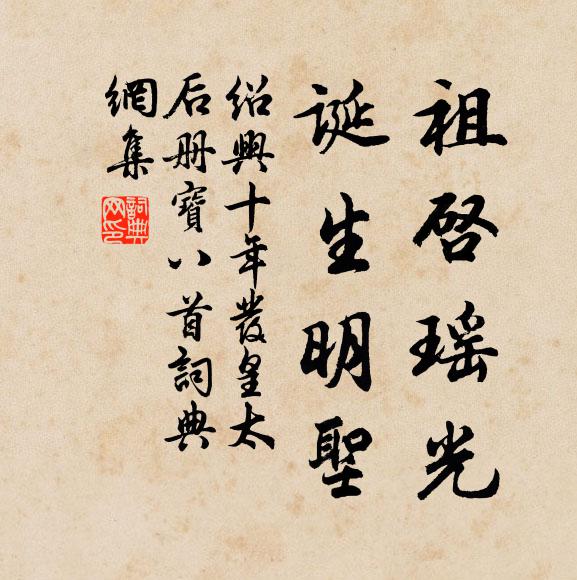 祖啓瑶光
誕生明聖
紹興十年發皇太
后册寶八首詞典
網集
詞典
网印